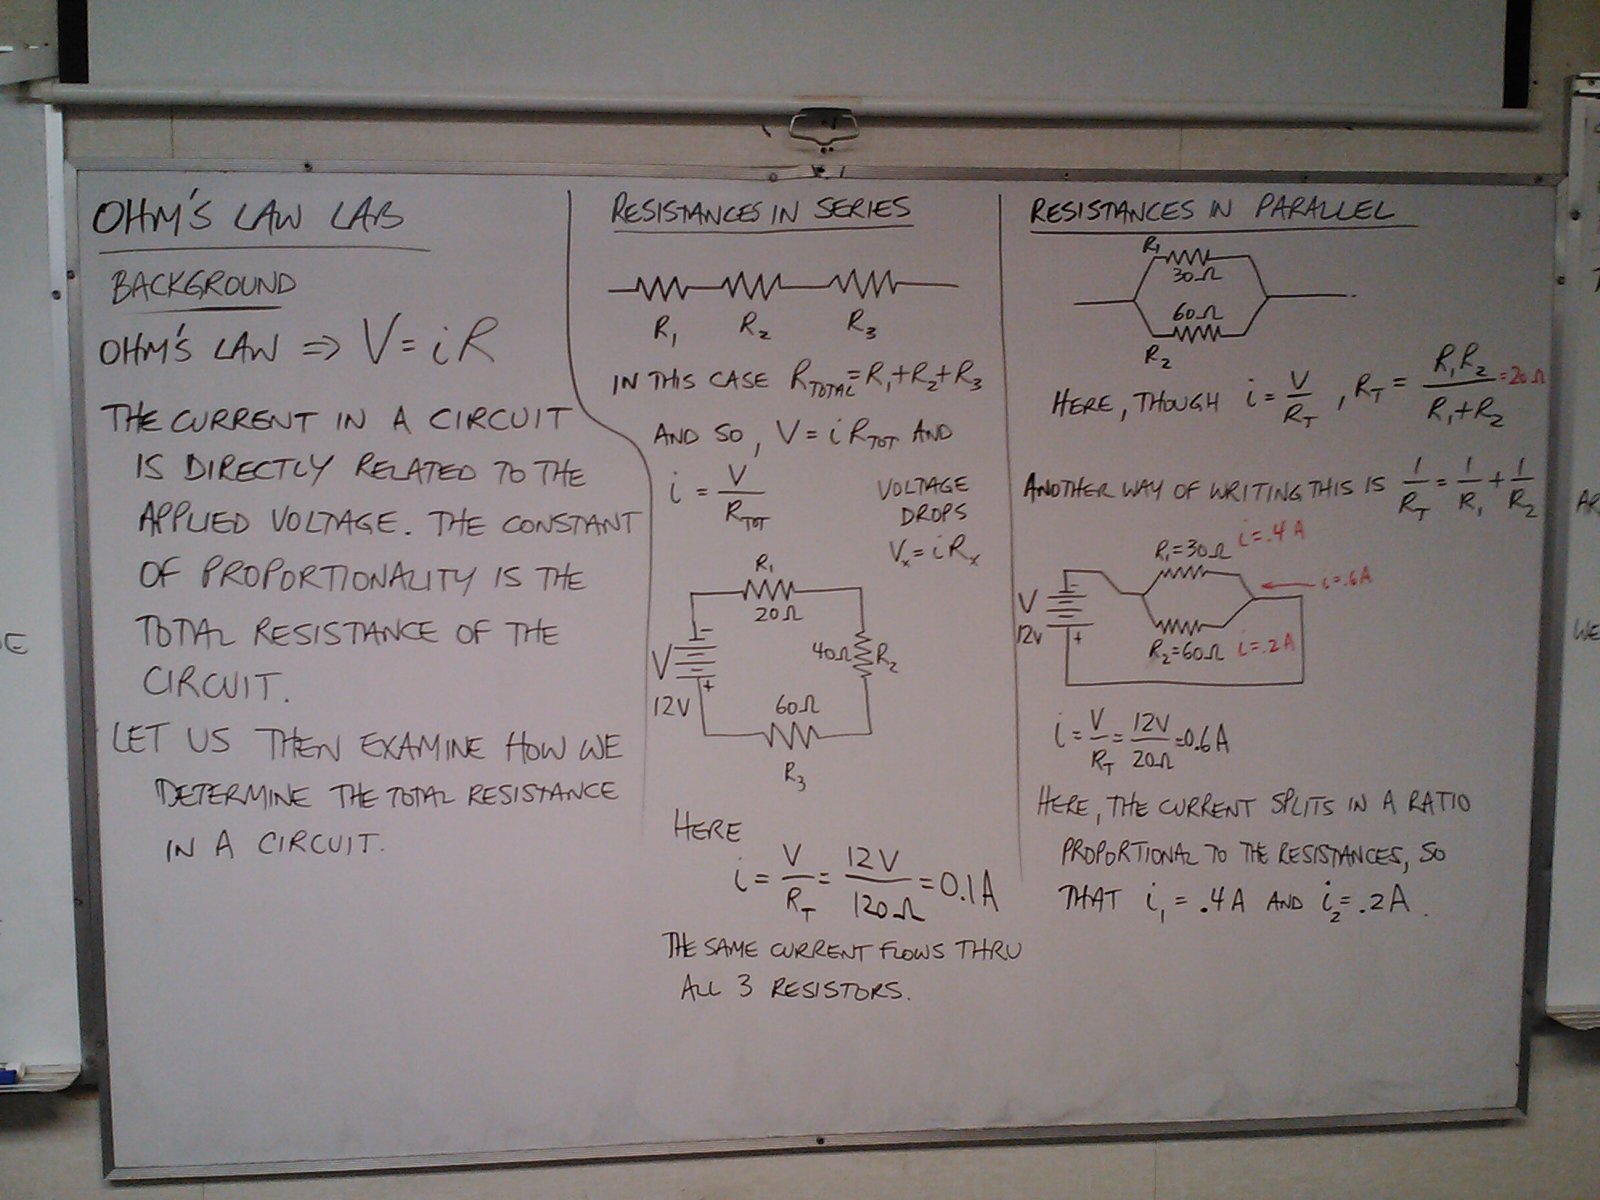 OHM'S LAW LAB
BACKGROUND
OHM'S LAW ⇒ V = iR
THE CURRENT IN A CIRCUIT
IS DIRECTLY RELATED TO THE
APPLIED VOLTAGE. THE CONSTANT
OF PROPORTIONALITY IS THE
TOTAL RESISTANCE OF THE
CIRCUIT.
LET US THEN EXAMINE HOW WE
DETERMINE THE TOTAL RESISTANCE
IN A CIRCUIT.
RESISTANCES IN SERIES
R₁ R₂ R₃
IN THIS CASE R_TOTAL = R₁+R₂+R₃
AND SO, V = iR_TOT AND
i = V/R_TOT
VOLTAGE
DROPS
Vₓ = iRₓ
R₁
20Ω
40Ω R₂
V
12V
+
60Ω
R₃
HERE
i = V/R_T = 12V/120Ω = 0.1A
THE SAME CURRENT FLOWS THRU
ALL 3 RESISTORS.
RESISTANCES IN PARALLEL
R₁
30Ω
60Ω
R₂
HERE, THOUGH i = V/R_T , R_T = R₁R₂/R₁+R₂ = 20Ω
ANOTHER WAY OF WRITING THIS IS 1/R_T = 1/R₁ + 1/R₂
R₁=30Ω i=.4A
i=.6A
V
12V
+
R₂=60Ω i=.2A
i = V/R_T = 12V/20Ω = 0.6A
HERE, THE CURRENT SPLITS IN A RATIO
PROPORTIONAL TO THE RESISTANCES, SO
THAT i₁ = .4A AND i₂ = .2A.
WE